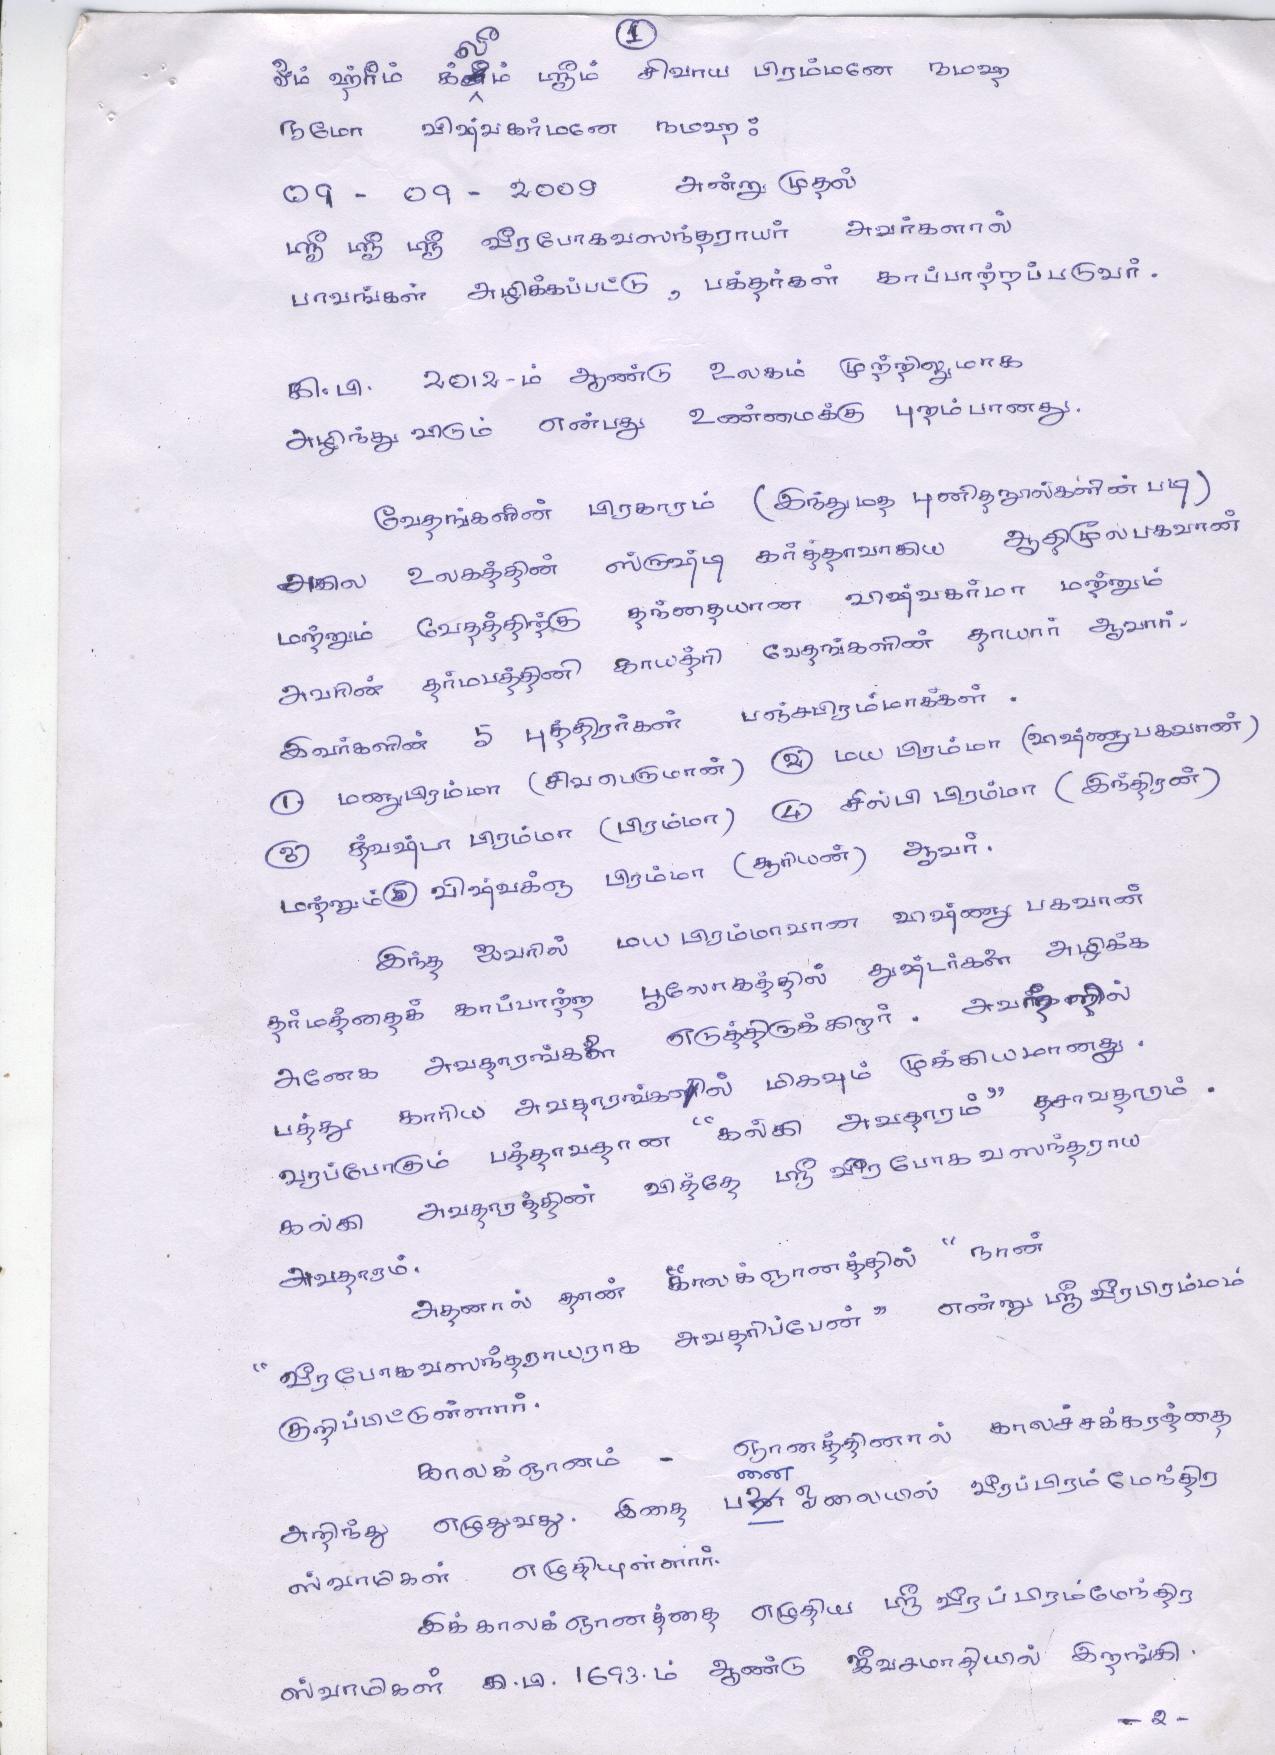 1
ஹ்ரீம் க்லீம் ஸ்ரீம் சிவாய பிரம்மனே நமஹ
நமோ விஷ்வகர்மனே நமஹ:
09 - 09 - 2009 அன்று முதல்
ஸ்ரீ ஸ்ரீ ஸ்ரீ வீரபோகவஸந்தராயர் அவர்களால்
பாவங்கள் அழிக்கப்பட்டு, பக்தர்கள் காப்பாற்றப்படுவர்.
கி.பி. 2012-ம் ஆண்டு உலகம் முற்றிலுமாக
அழிந்து விடும் என்பது உண்மைக்கு புறம்பானது.
வேதங்களின் பிரகாரம் (இந்துமத புனிதநூல்களின் படி)
அகில உலகத்தின் ஸ்ருஷ்டி கர்த்தாவாகிய ஆதிமூலபகவான்
மற்றும் வேதத்திற்கு தந்தையான விஷ்வகர்மா மற்றும்
அவரின் தர்மபத்தினி காயத்ரி வேதங்களின் தாயார் ஆவார்.
இவர்களின் 5 புத்திரர்கள் பஞ்சபிரம்மாக்கள்.
1 மனுபிரம்மா (சிவபெருமான்) 2 மய பிரம்மா (விஷ்ணுபகவான்)
3 த்வஷ்டா பிரம்மா (பிரம்மா) 4 சில்பி பிரம்மா (இந்திரன்)
மற்றும் 5 விஷ்வக்ஞ பிரம்மா (சூரியன்) ஆவர்.
இந்த ஐவரில் மய பிரம்மாவான விஷ்ணு பகவான்
தர்மத்தைக் காப்பாற்ற பூலோகத்தில் துஷ்டர்களை அழிக்க
அனேக அவதாரங்களை எடுத்திருக்கிறார். அவற்றில்
பத்து காரிய அவதாரங்களில் மிகவும் முக்கியமானது.
வரப்போகும் பத்தாவதான "கல்கி அவதாரம்" தசாவதாரம்.
கல்கி அவதாரத்தின் வித்தே ஸ்ரீ வீரபோகவஸந்தராய
அவதாரம்.
அதனால் தான் காலக்ஞானத்தில் "நான்
"வீரபோகவஸந்தராயராக அவதரிப்பேன்" என்று ஸ்ரீ வீரபிரம்மம்
குறிப்பிட்டுள்ளார்.
காலக்ஞானம் - ஞானத்தினால் காலச்சக்கரத்தை
அறிந்து எழுதுவது. இதை பனை ஓலையில் வீரப்பிரம்மேந்திர
ஸ்வாமிகள் எழுதியுள்ளார்.
இக்காலக்ஞானத்தை எழுதிய ஸ்ரீ வீரப்பிரம்மேந்திர
ஸ்வாமிகள் கி.பி. 1693.ம் ஆண்டு ஜீவசமாதியில் இறங்கி.
- 2 -